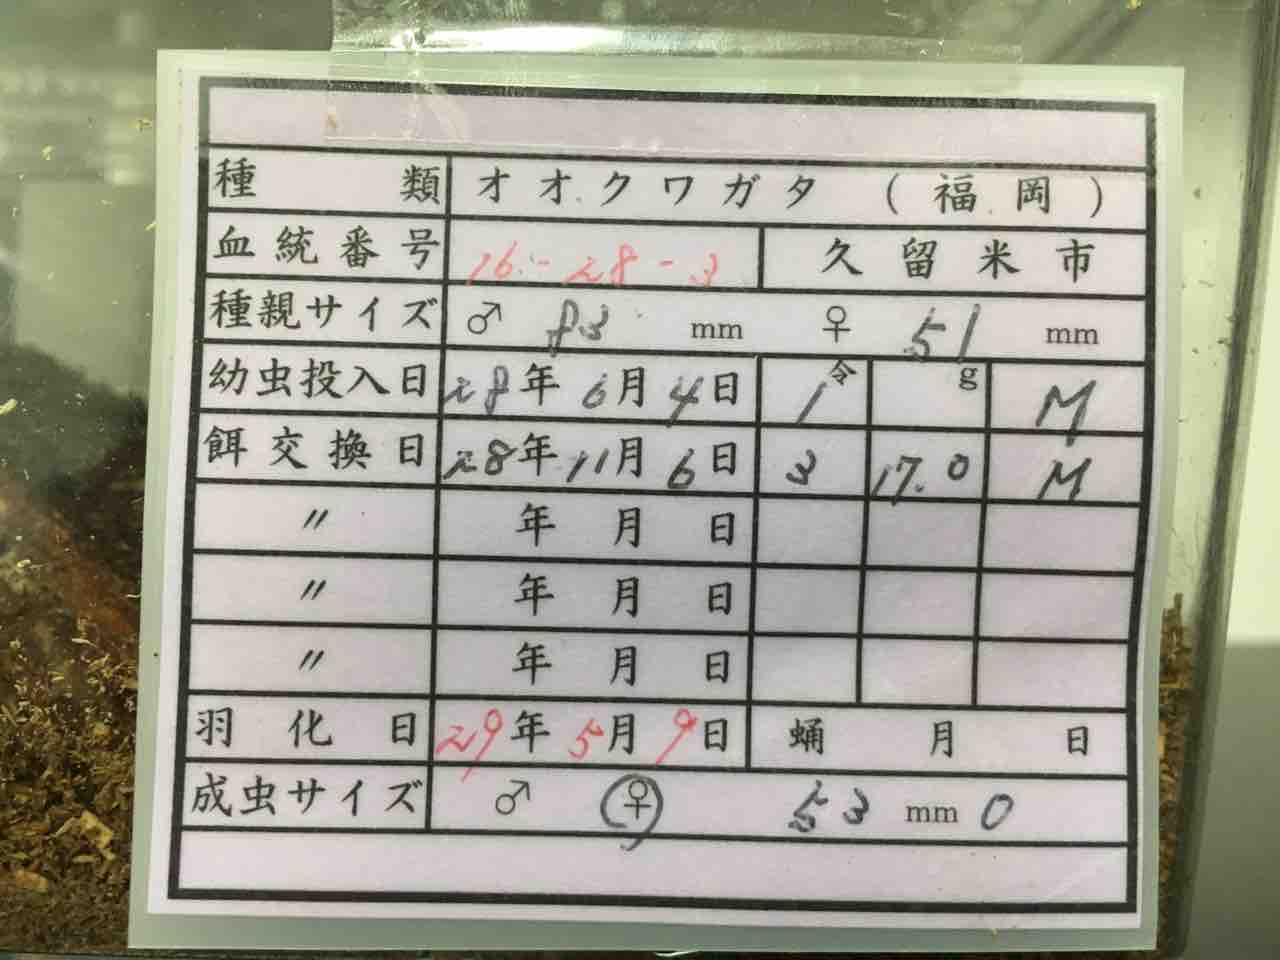 種類 オオクワガタ (福岡)
血統番号 16-28-3 久留米市
種親サイズ ♂ 83 mm ♀ 51 mm
幼虫投入日 28年 6月 4日 1令 g M
餌交換日 28年 11月 6日 3 17.0 M
〃 年 月 日
〃 年 月 日
〃 年 月 日
羽化日 29年 5月 9日 蛹 月 日
成虫サイズ ♂ ♀ 53 mm 0